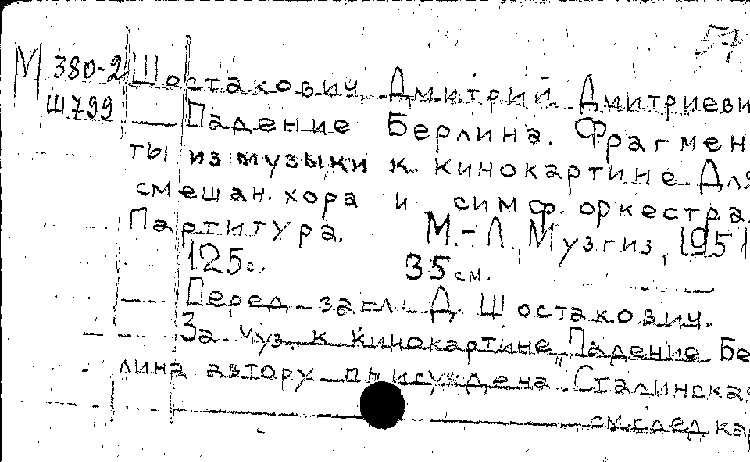 57
М 380-2 Шостакович Дмитрий Дмитриеви
Ш799 Падение Берлина. Фрагмен
ты из музыки к кинокартине. Для
смешан. хора и симф. оркестра.
Партитура. М.-Л. Музгиз, 1951
125с. 35см.
Перед загл. Д. Шостакович.
За муз. к кинокартине "Падение Бе
лина" автору присуждена Сталинская
см. след кар